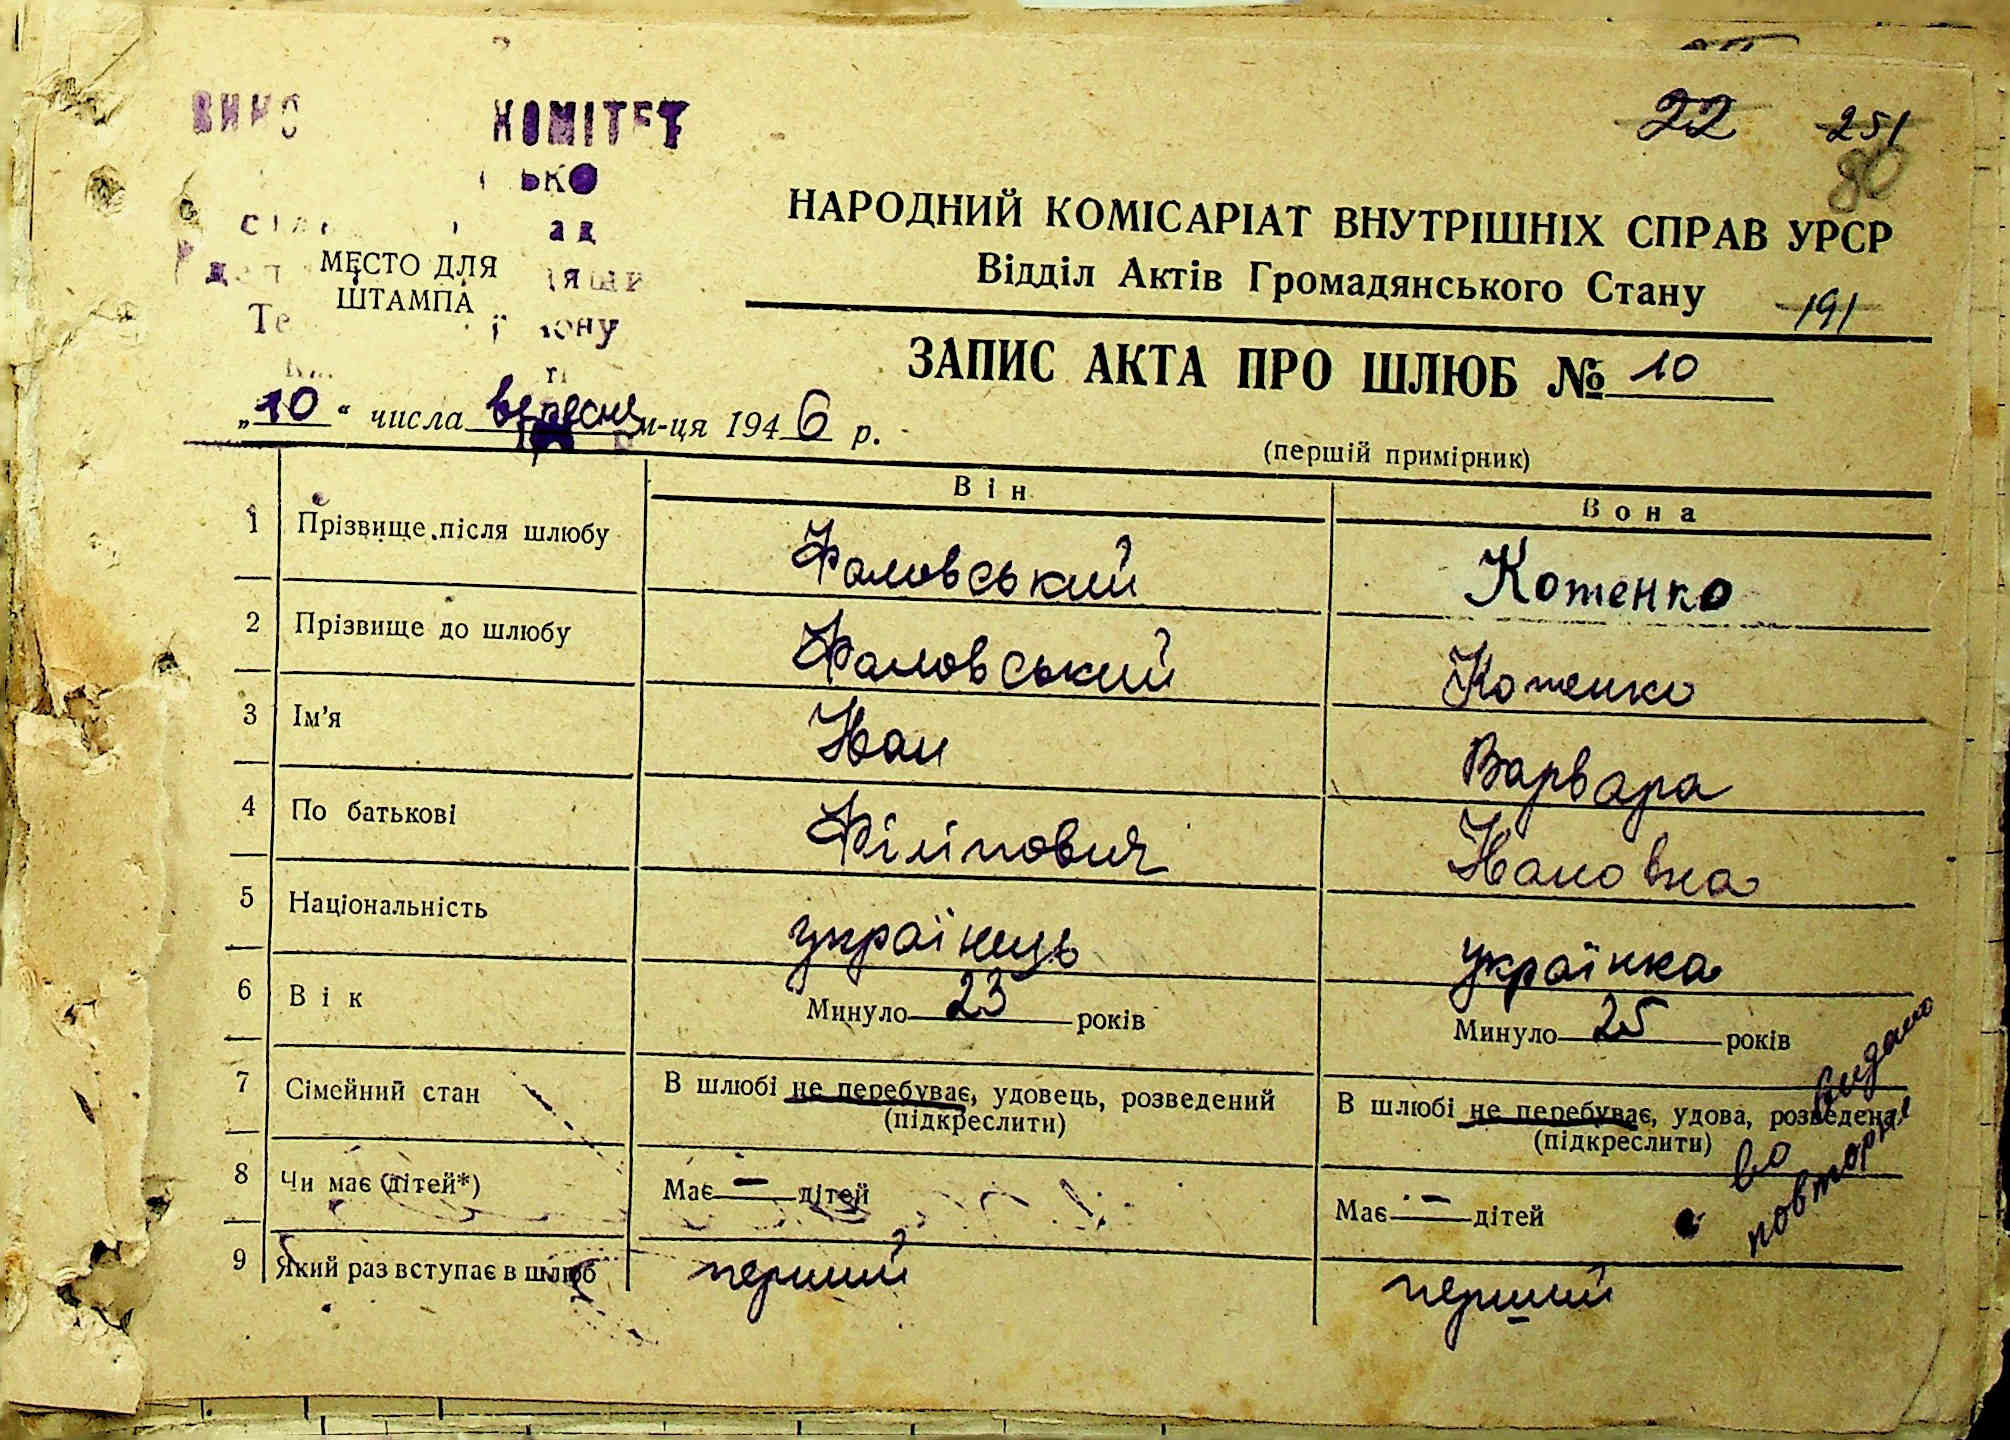 22 251
80
КОМІТЕТ
НАРОДНИЙ КОМІСАРІАТ ВНУТРІШНІХ СПРАВ УРСР
Відділ Актів Громадянського Стану
191
МЕСТО ДЛЯ
ШТАМПА
ЗАПИС АКТА ПРО ШЛЮБ № 10
„10“ числа вересня м-ця 1946 р.
(першій примірник)
Він Вона
1 Прізвище після шлюбу Фаловський Котенко
2 Прізвище до шлюбу Фаловський Котенко
3 Ім'я Іван Варвара
4 По батькові Філіпович Івановна
5 Національність українець українка
6 Вік Минуло 23 років Минуло 25 років
7 Сімейний стан В шлюбі не перебуває, удовець, розведений В шлюбі не перебуває, удова, розведена
(підкреслити) (підкреслити)
видано
повторне
8 Чи має (дітей*) Має — дітей Має — дітей
9 Який раз вступає в шлюб перший перший